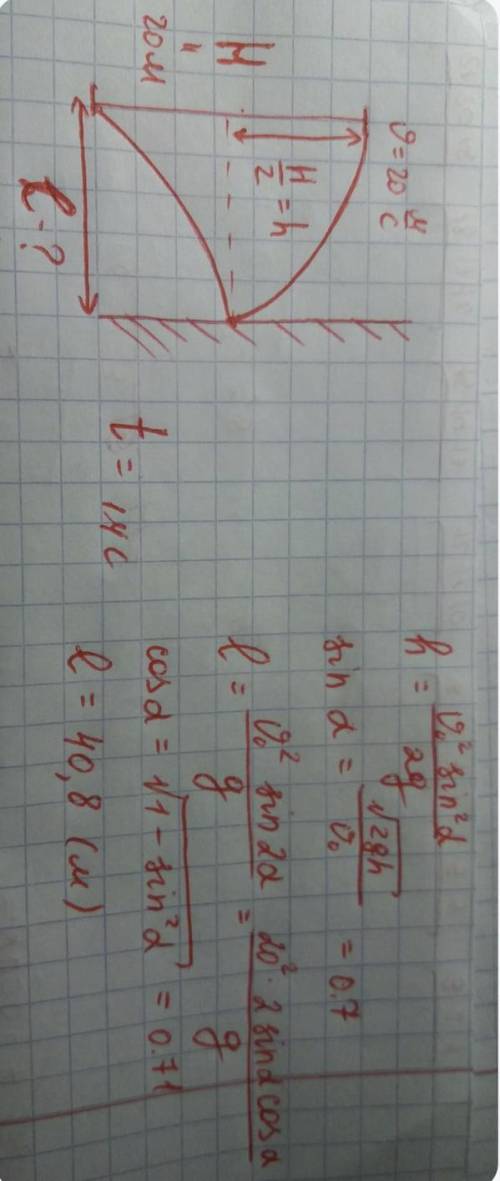 υ = 20 м/с
H/2 = h
H
"
20м
l - ?
t = 1,4 c
h = υ₀² sin²α / 2g
sin α = √2gh / υ₀ = 0.7
l = υ₀² sin2α / g = 20² · 2 sinα cosα / g
cosα = √1 - sin²α = 0.71
l = 40,8 (м)